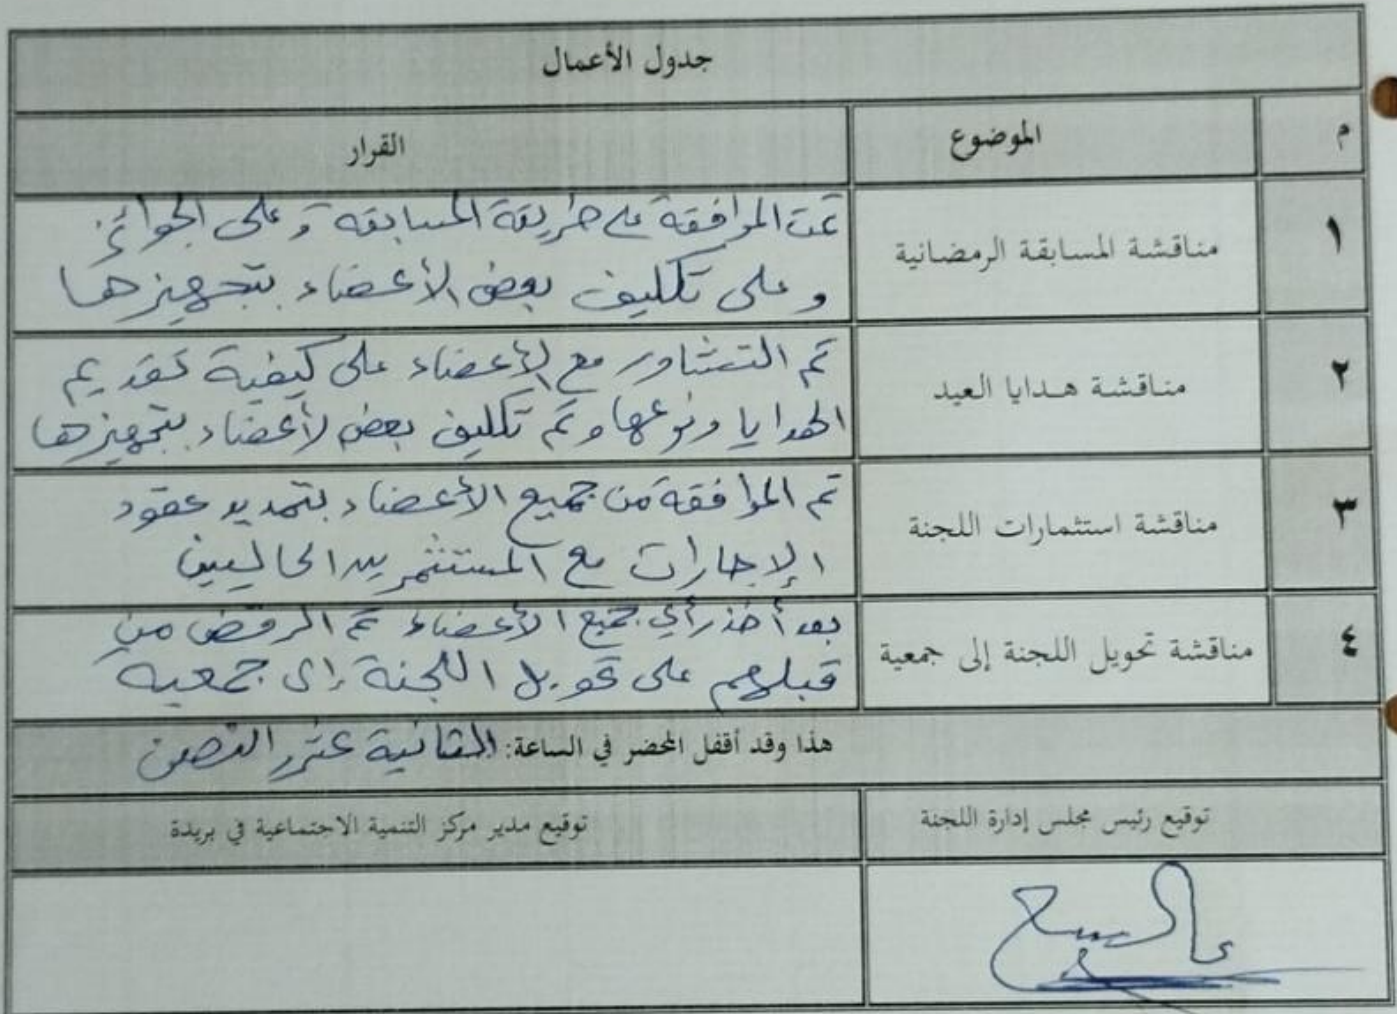 جدول الأعمال
م الموضوع القرار
١ مناقشة المسابقة الرمضانية تمت الموافقة على طريقة المسابقة وعلى الجوائز
وعلى تكليف بعض الأعضاء بتجهيزها
٢ مناقشة هدايا العيد تم التشاور مع الأعضاء على كيفية تقديم
الهدايا ونوعها وتم تكليف بعض الأعضاء بتجهيزها
٣ مناقشة استثمارات اللجنة تم الموافقة من جميع الأعضاء بتمديد عقود
الإجارات مع المستثمرين الحاليين
٤ مناقشة تحويل اللجنة إلى جمعية بعد أخذ رأي جميع الأعضاء تم الرفض من
قبلهم على تحويل اللجنة إلى جمعية
هذا وقد أقفل المحضر في الساعة: الثانية عشر والنصف
توقيع رئيس مجلس إدارة اللجنة توقيع مدير مركز التنمية الاجتماعية في بريدة